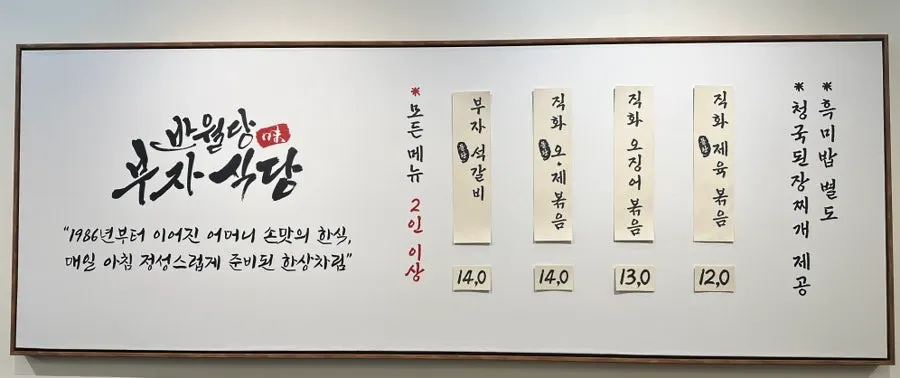 반월당
味
부자식당
"1986년부터 이어진 어머니 손맛의 한식,
매일 아침 정성스럽게 준비된 한상차림"
*모든 메뉴 2인 이상
부자 석갈비
14,0
직화 오·제볶음
14,0
직화 오징어볶음
13,0
직화 제육볶음
12,0
*흑미밥 별도
*청국된장찌개 제공